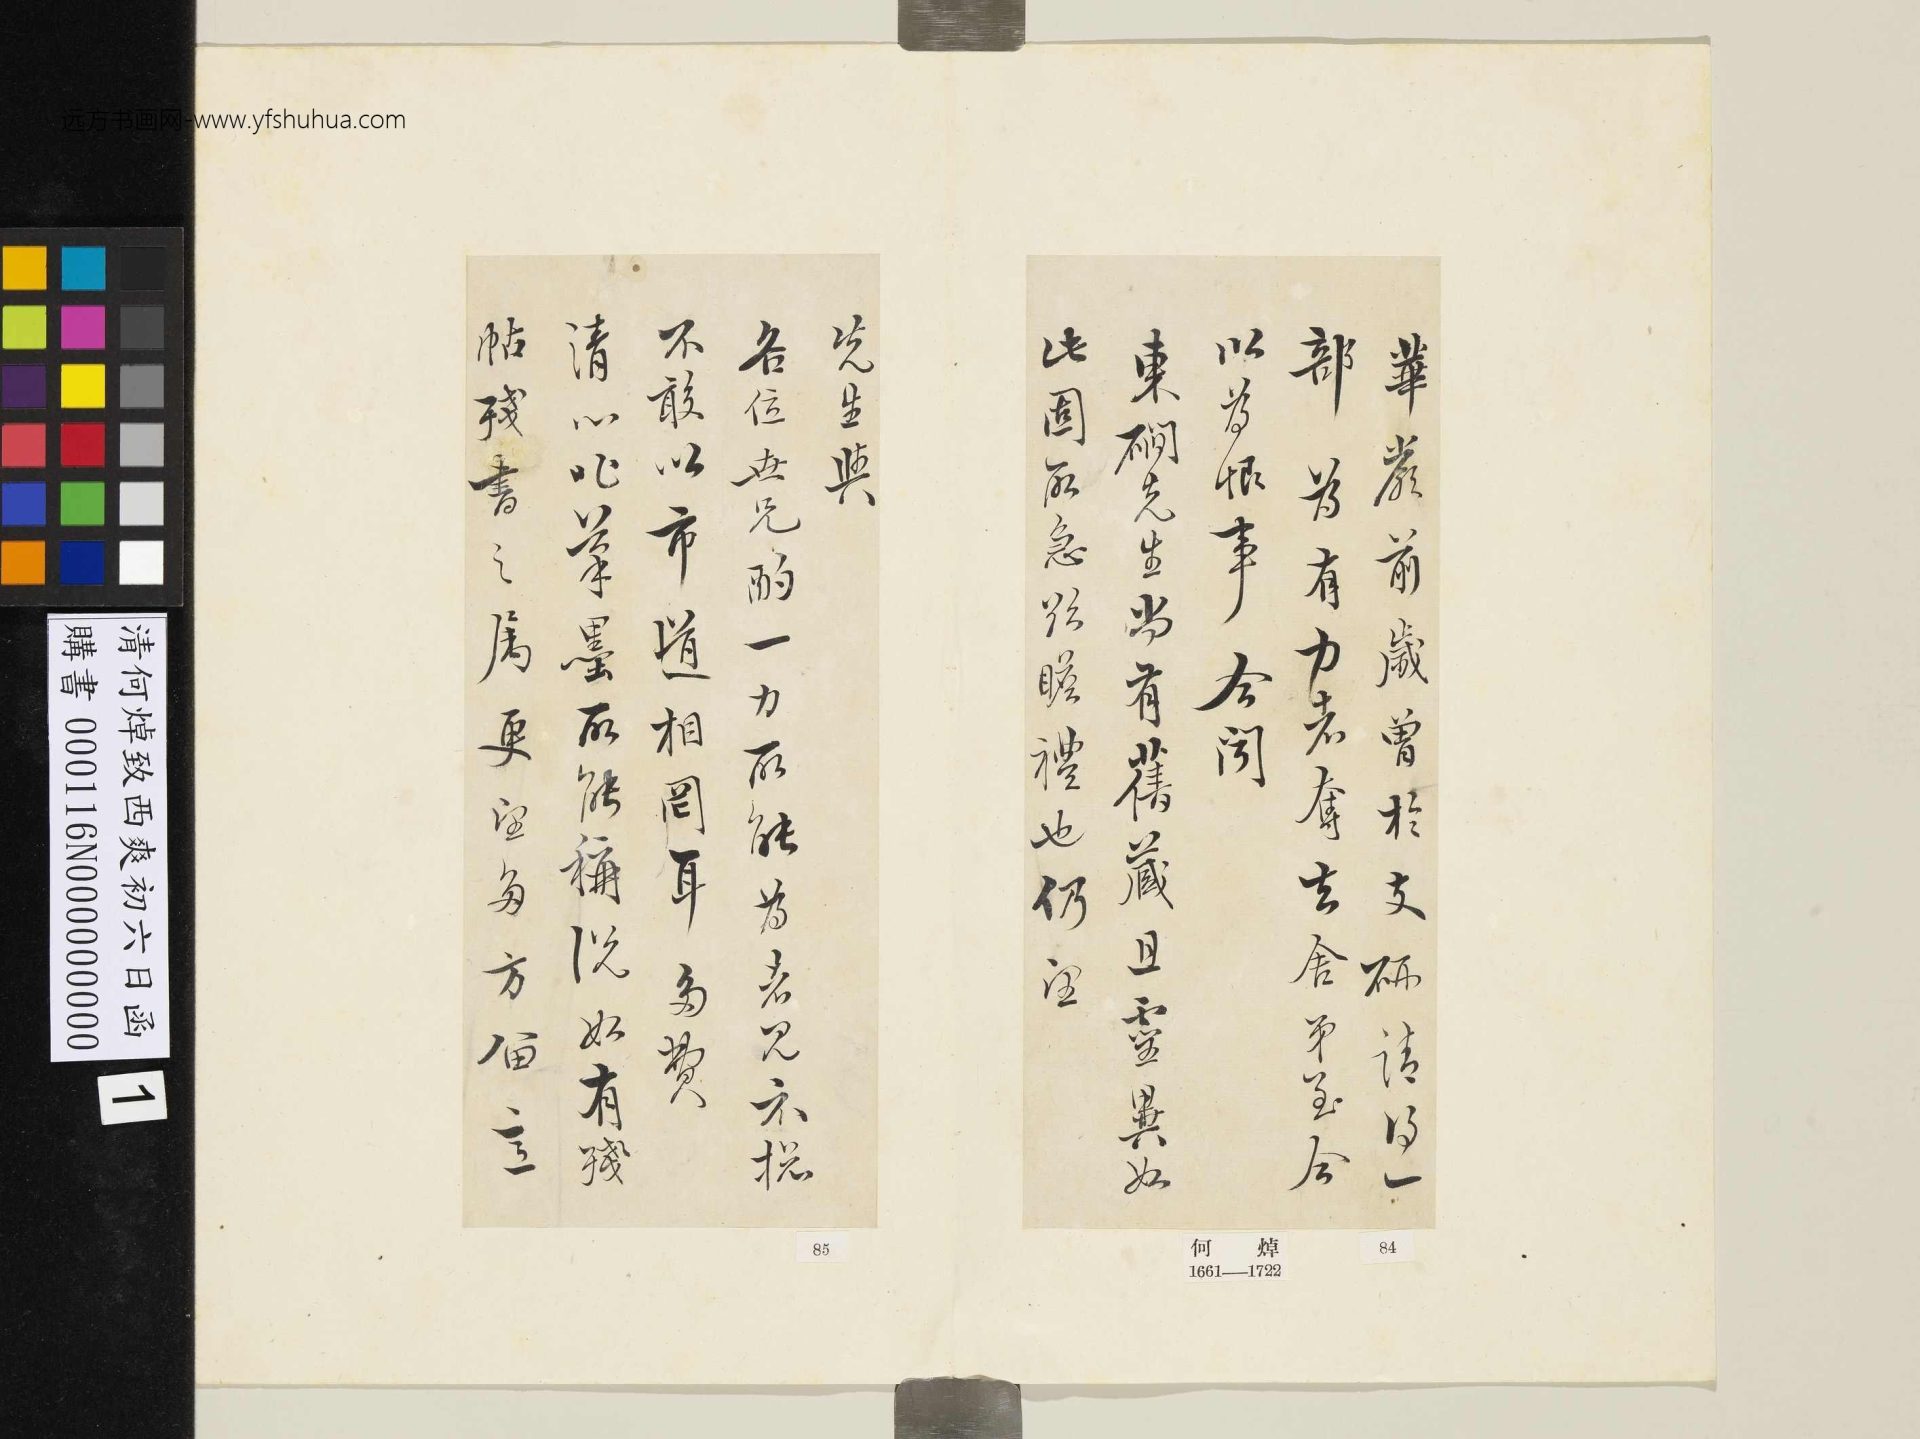 远方书画网-www.yfshuhua.com
華嚴前歲曾於支硎請得一
部為有力者奪去舍弟至今
以為恨事今聞
東礀先生尚有舊蔵且靈異如
此固所急欲瞻禮也仍望
先生與
各位世兄酌一力所能為者見示槩
不敢以市道相罔耳多贊
清心非筆墨所能稱況如有殘
帖殘書之屬更望多方留意
何焯
1661——1722
84
85
清何焯致西爽初六日函
購書 000116N000000000
1